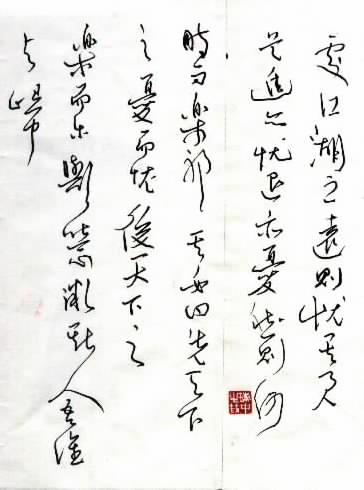 處江湖之遠則忧其君
是進亦忧退亦憂然則何
時而樂耶其必曰先天下
之憂而忧後天下之
樂而乐歟噫微斯人吾誰
与歸